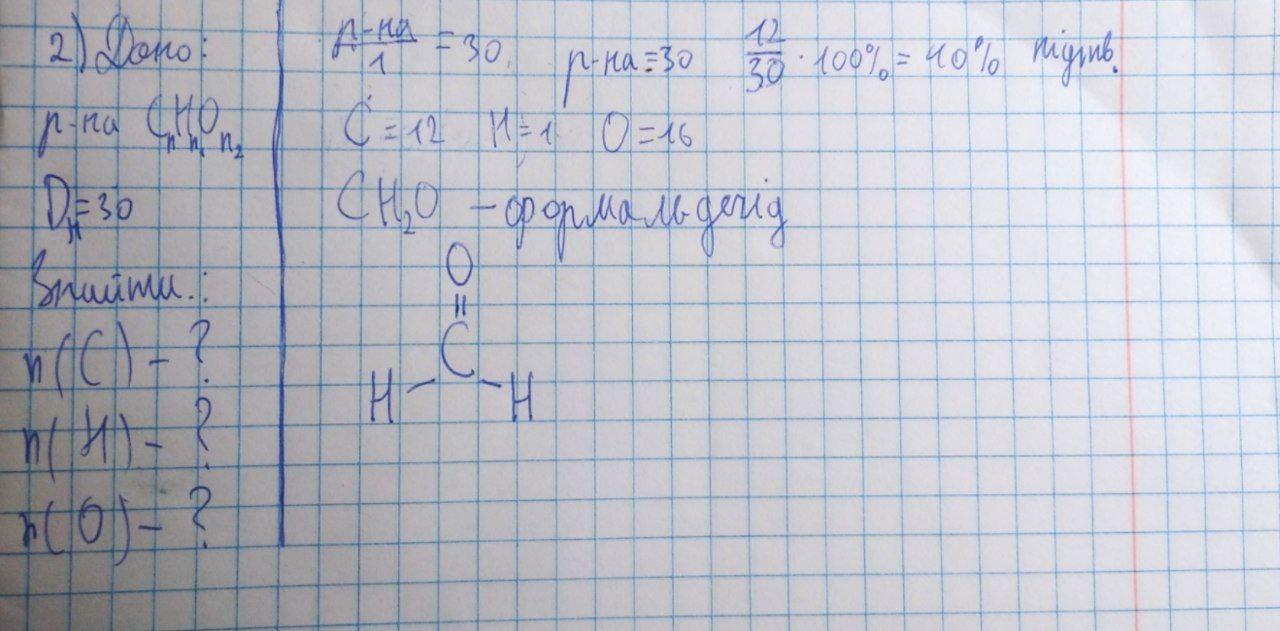 2) Дано:
р-на CₙHₙ₁Oₙ₂
D_H=30
Знайти.:
n(C) - ?
n(H) - ?
n(O) - ?
р-на/1 = 30. р-на=30 12/30 · 100% = 40% підтв.
C=12 H=1 O=16
CH₂O – формальдегід
O
||
C
H – – H